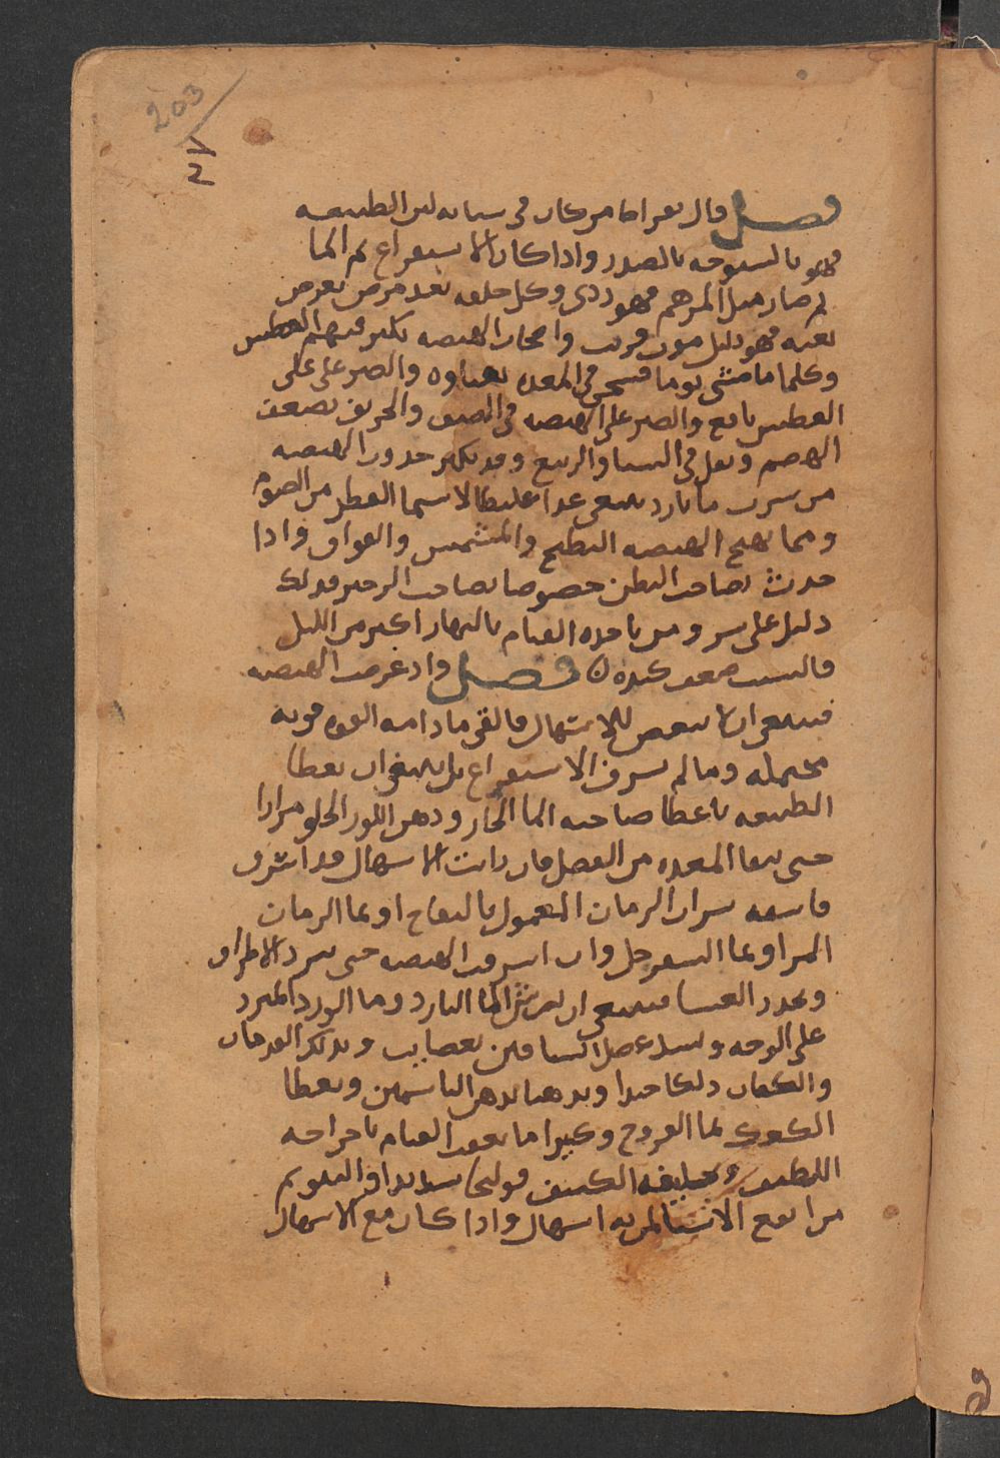 203
٢٧
فصل قال بقراط من كان في شبابه لين الطبيعه
فهو بالشيوخه بالضد واذا كان الاستفراغ لم الما
ثم صار مثل المرهم فهو ردى وكل خلفه بعد مرض تعرض
بغته فهو دليل موت قريب واصحاب الهيضه يكثر فيهم العطش
وكلما مشى يوما فسخن في المعده والصبر على
العطش نافع والصبر على الهيضه في الصيف والخريف لضعف
الهضم وتقل في الشتا والربيع وقد يكثر حدوث الهيضه
من شرب ما بارد غدا غليظا لا سيما الفطر من الصوم
ومما يهيج الهيضه البطيخ والمشمش والفواق واذا
حدث بصاحب البطن خصوصا بصاحب الزحير فذلك
دليل على شر ومن ياخذه القيام بالنهار اكثر من الليل
فالسبب ضعف كبده فصل واذ عرضت الهيضه
فينبغي ان للاسهال فالقى ما دامت القوه قويه
محتمله وما لم يسرف الاستفراغ بل ينبغي ان يعطا
الطبيعه باعطا صاحبه الما الحار ودهن اللوز الحلو مرارا
حتى تنقا المعده من الفضل فان رايت الاسهال قد اشرف
فاسقه شراب الرمان المعمول بالنعناع او بما الرمان
المز او بما السفرجل وان اسرفت الهيضه حتى تبرد الاطراف
ويحدث الغشا فينبغي ان يرش الما البارد وما الورد المبرد
على الوجه وشد عضل الساقين بعصايب ويدلك القدمان
والكفان دلكا جيدا ويدهنا بدهن الياسمين ويعطا
الكعك بما الفروج وكثيرا ما يعقب القيام باخراجه
اللطيف وتخليفه الكثيف قولنجا شديدا والنوم
من انفع الاشيا لمن به اسهال واذا كان مع الاسهال